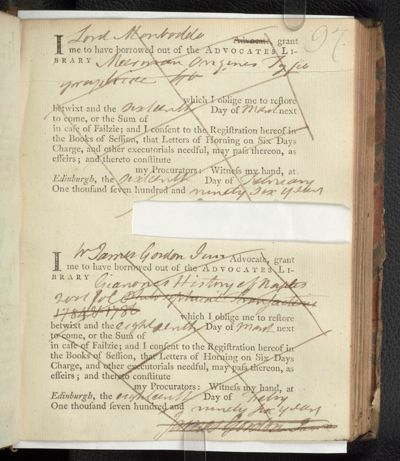 97.
I Lord Monboddo Advocate, grant
me to have borrowed out of the ADVOCATES LI-
BRARY Meerman Origines Typo
graphicae
which I oblige me to restore
betwixt and the sixteenth Day of March next
to come, or the Sum of
in case of Failzie; and I consent to the Registration hereof in
the Books of Session, that Letters of Horning on Six Days
Charge, and other executorials needful, may pass thereon, as
effeirs; and thereto constitute
my Procurators: Witness my hand, at
Edinburgh, the sixteenth Day of February
One thousand seven hundred and ninety six years
I Mr James Gordon Junr Advocate, grant
me to have borrowed out of the ADVOCATES LI-
BRARY Gianones History of Naples
2 vol Philosophical Transactions
which I oblige me to restore
betwixt and the eighteenth Day of March next
to come, or the Sum of
in case of Failzie; and I consent to the Registration hereof in
the Books of Session, that Letters of Horning on Six Days
Charge, and other executorials needful, may pass thereon, as
effeirs; and thereto constitute
my Procurators: Witness my hand, at
Edinburgh, the eighteenth Day of Febry
One thousand seven hundred and ninety six years
James Gordon Junr